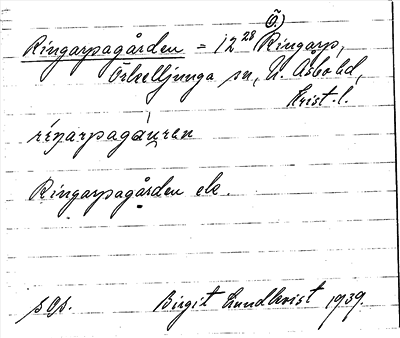 Ö.)
Ringarpagården = 12²⁸ Ringarp,
Örkelljunga sn, N. Åsbo hd,
Krist. l.
Ringarpagården ek.
sgs. Birgit Lundkvist 1939.